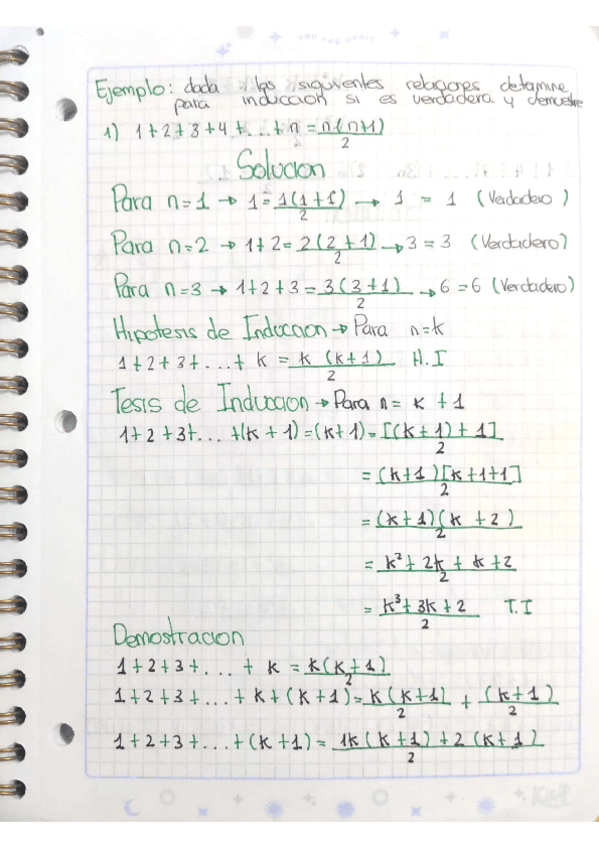 Ejemplo: dada las siguientes relaciones determine
para induccion si es verdadera y demuestre
1) 1+2+3+4+...+n = n(n+1)
2
Solucion
Para n=1 → 1 = 1(1+1) → 1 = 1 (Verdadero)
2
Para n=2 → 1+2 = 2(2+1) → 3 = 3 (Verdadero)
2
Para n=3 → 1+2+3 = 3(3+1) → 6 = 6 (Verdadero)
2
Hipotesis de Induccion → Para n=k
1+2+3+...+ k = k (k+1) H.I
2
Tesis de Induccion → Para n= k +1
1+2+3+... +(k+1) = (k+1) = [(k+1)+1]
2
= (k+1)[k+1+1]
2
= (k+1)(k +2)
2
= k²+ 2k + k +2
2
= k³+3k+2 T.I
2
Demostracion
1+2+3+...+ k = k(k+1)
2
1+2+3+...+k+(k+1) = k(k+1) + (k+1)
2 2
1+2+3+...+(k+1) = 1k(k+1)+2(k+1)
2